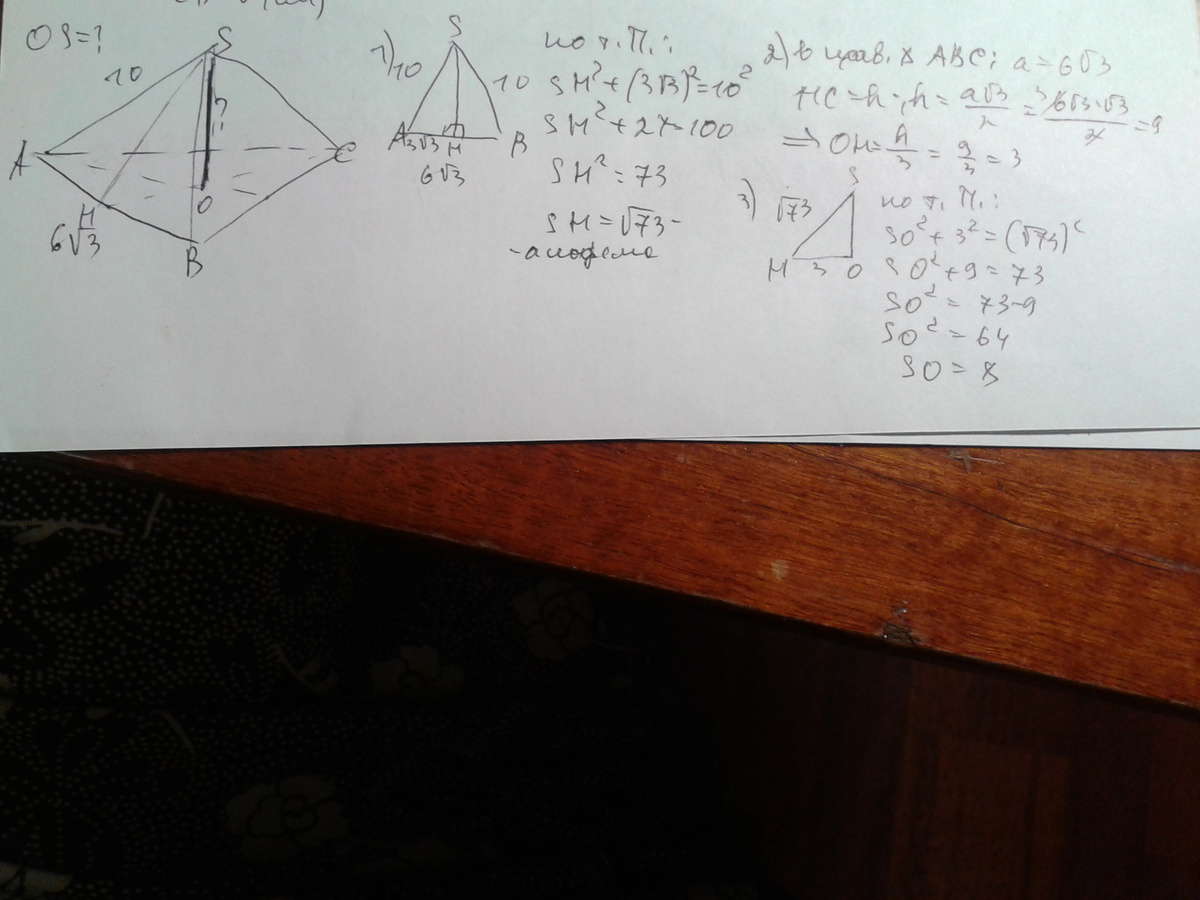 OS=?
S
10
?
A
C
O
H
6√3
B
1)
S
10
10
A
3√3
H
B
6√3
по т.П.:
SH²+(3√3)²=10²
SH²+27=100
SH²=73
SH=√73-
-апофема
2) в прав. △ ABC: a=6√3
HC=h; h=a√3/2=6√3·√3/2=9
⇒ OH=h/3=9/3=3
3)
S
√73
H
3
O
по т.П.:
SO²+3²=(√73)²
SO²+9=73
SO²=73-9
SO²=64
SO=8